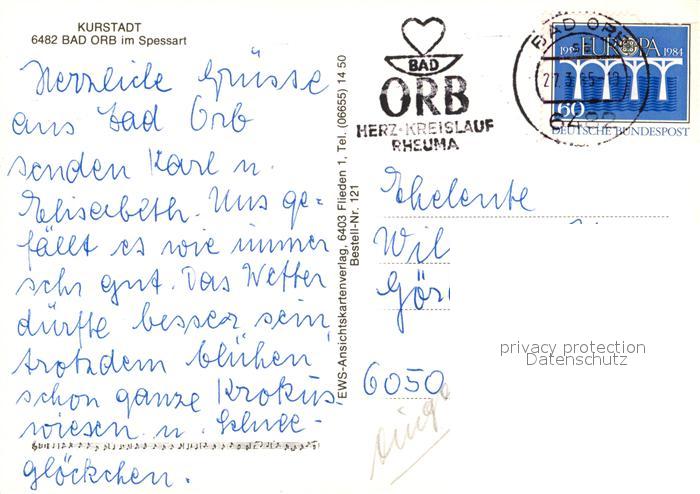 KURSTADT
6482 BAD ORB im Spessart
Herzliche Grüsse
aus Bad Orb
senden Karl u.
Elisabeth. Uns ge-
fällt es wie immer
sehr gut. Das Wetter
dürfte besser sein,
trotzdem blühen
schon ganze Krokus-
wiesen u. Schnee-
glöckchen.
EWS-Ansichtskartenverlag, 6403 Flieden 1, Tel. (06655) 14 50
Bestell-Nr. 121
BAD
ORB
HERZ-KREISLAUF
RHEUMA
BAD ORB
6482
EUROPA 1984
60
DEUTSCHE BUNDESPOST
Eheleute
Wil
Gör
6050
privacy protection
Datenschutz